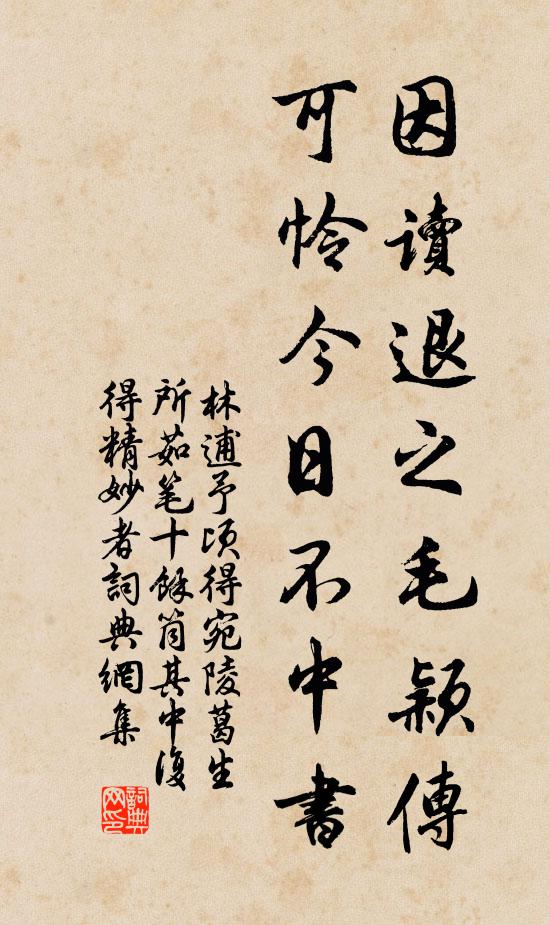 因讀退之毛穎傳
可憐今日不中書
林逋予頃得宛陵葛生
所茹笔十餘筒其中復
得精妙者詞典網集
詞典
网印